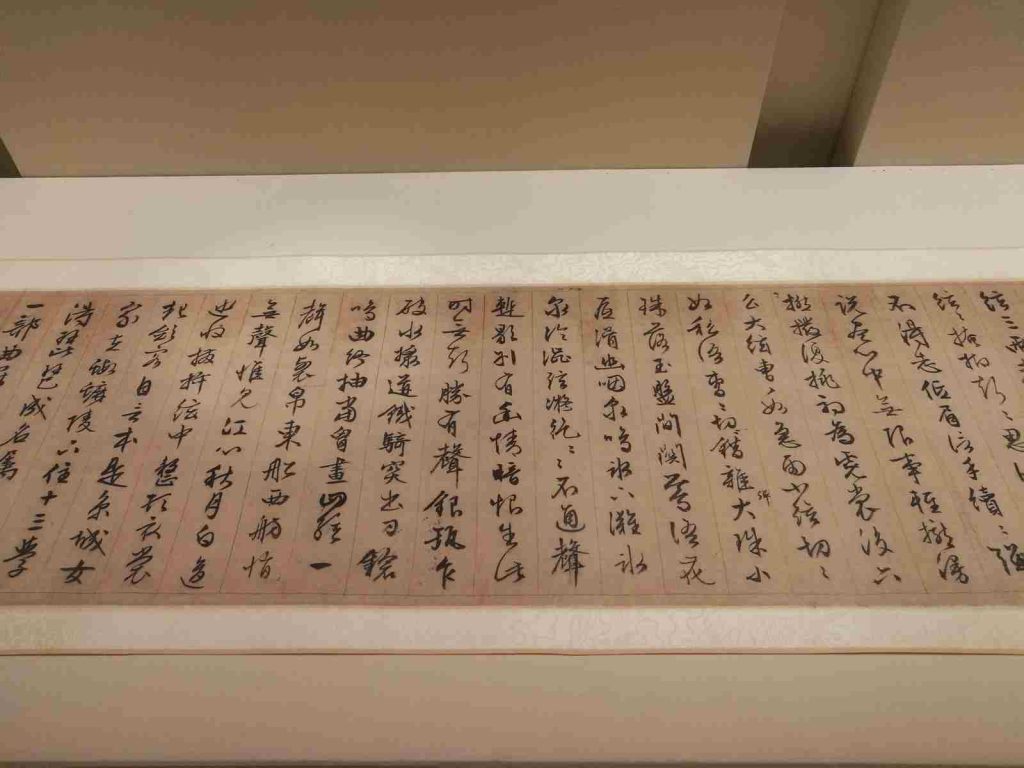 絃三兩
絃〻掩抑聲〻思似
不得志低眉信手續〻彈
說盡心中無限事輕攏慢
撚撥復挑初為霓裳後六
么大絃嘈如急雨小絃切〻
如私語嘈〻切〻錯雜彈大珠小
珠落玉盤間關鶯語花
底滑幽咽泉鳴冰下灘冰
泉冷澀絃凝絕〻〻不通聲
暫歇別有幽情暗恨生此
時無聲勝有聲銀瓶乍
破水漿迸鐵騎突出刀鎗
鳴曲終抽當胷畫四絃一
聲如裂帛東船西舫悄
無聲惟見江心秋月白沉
吟收撥插絃中整頓衣裳
起斂容自言本是京城女
家在蝦蟆陵下住十三學
得琵琶成名屬
一部曲罷